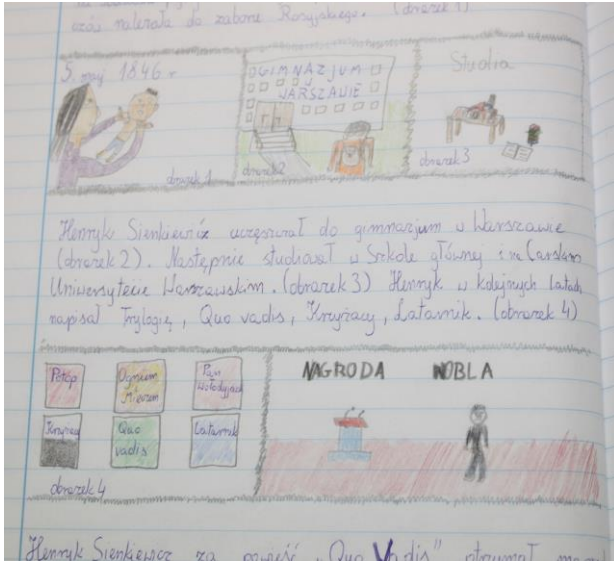 należała do zaboru Rosyjskiego. (obrazek 1)
5. maj 1846 r
obrazek 1
GIMNAZJUM
WARSZAWIE
obrazek 2
Studia
obrazek 3
Henryk Sienkiewicz uczęszczał do gimnazjum w Warszawie
(obrazek 2). Następnie studiował w Szkole głównej i na Carskim
Uniwersytecie Warszawskim. (obrazek 3) Henryk w kolejnych latach
napisał Trylogię, Quo vadis, Krzyżacy, Latarnik. (obrazek 4)
Potop
Ogniem
Mieczem
Pan
Wołodyjowski
Krzyżacy
Quo
vadis
Latarnik
obrazek 4
NAGRODA NOBLA
Henryk Sienkiewicz za powieść „Quo Vadis" otrzymał